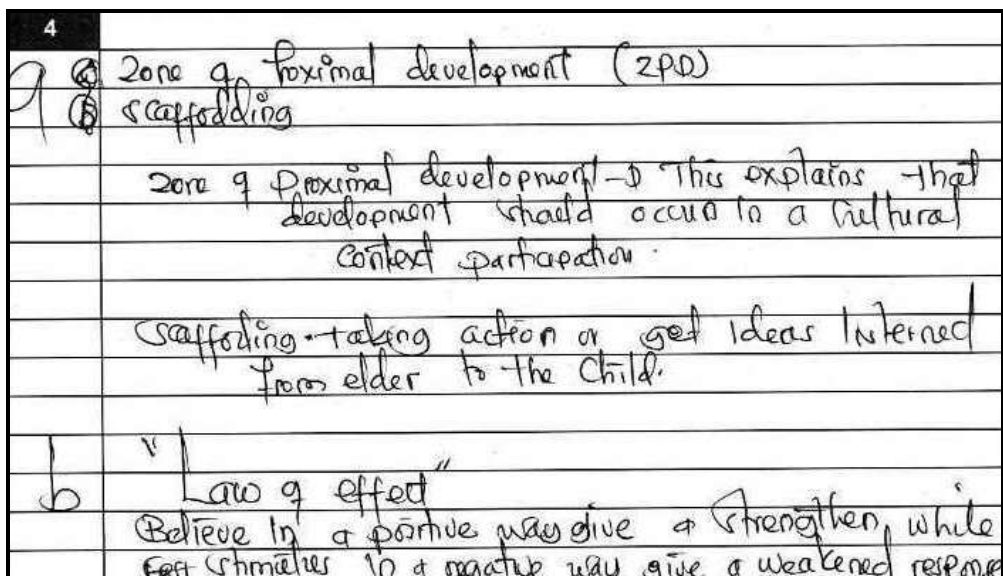 4
9 (a) Zone of Proximal development (ZPD)
(b) scaffodding
Zone of Proximal development → This explains that
development should occur in a Cultural
Context participation.
Scaffolding. taking action or get Ideas Interned
from elder to the Child.
b "Law of effect"
Believe in a positive way give a strengthen, while
stimulus in a negative way give a weakened response